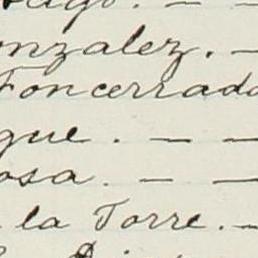 onzalez. —
Foncerrada
gue. — —
osa. — —
la Torre. —